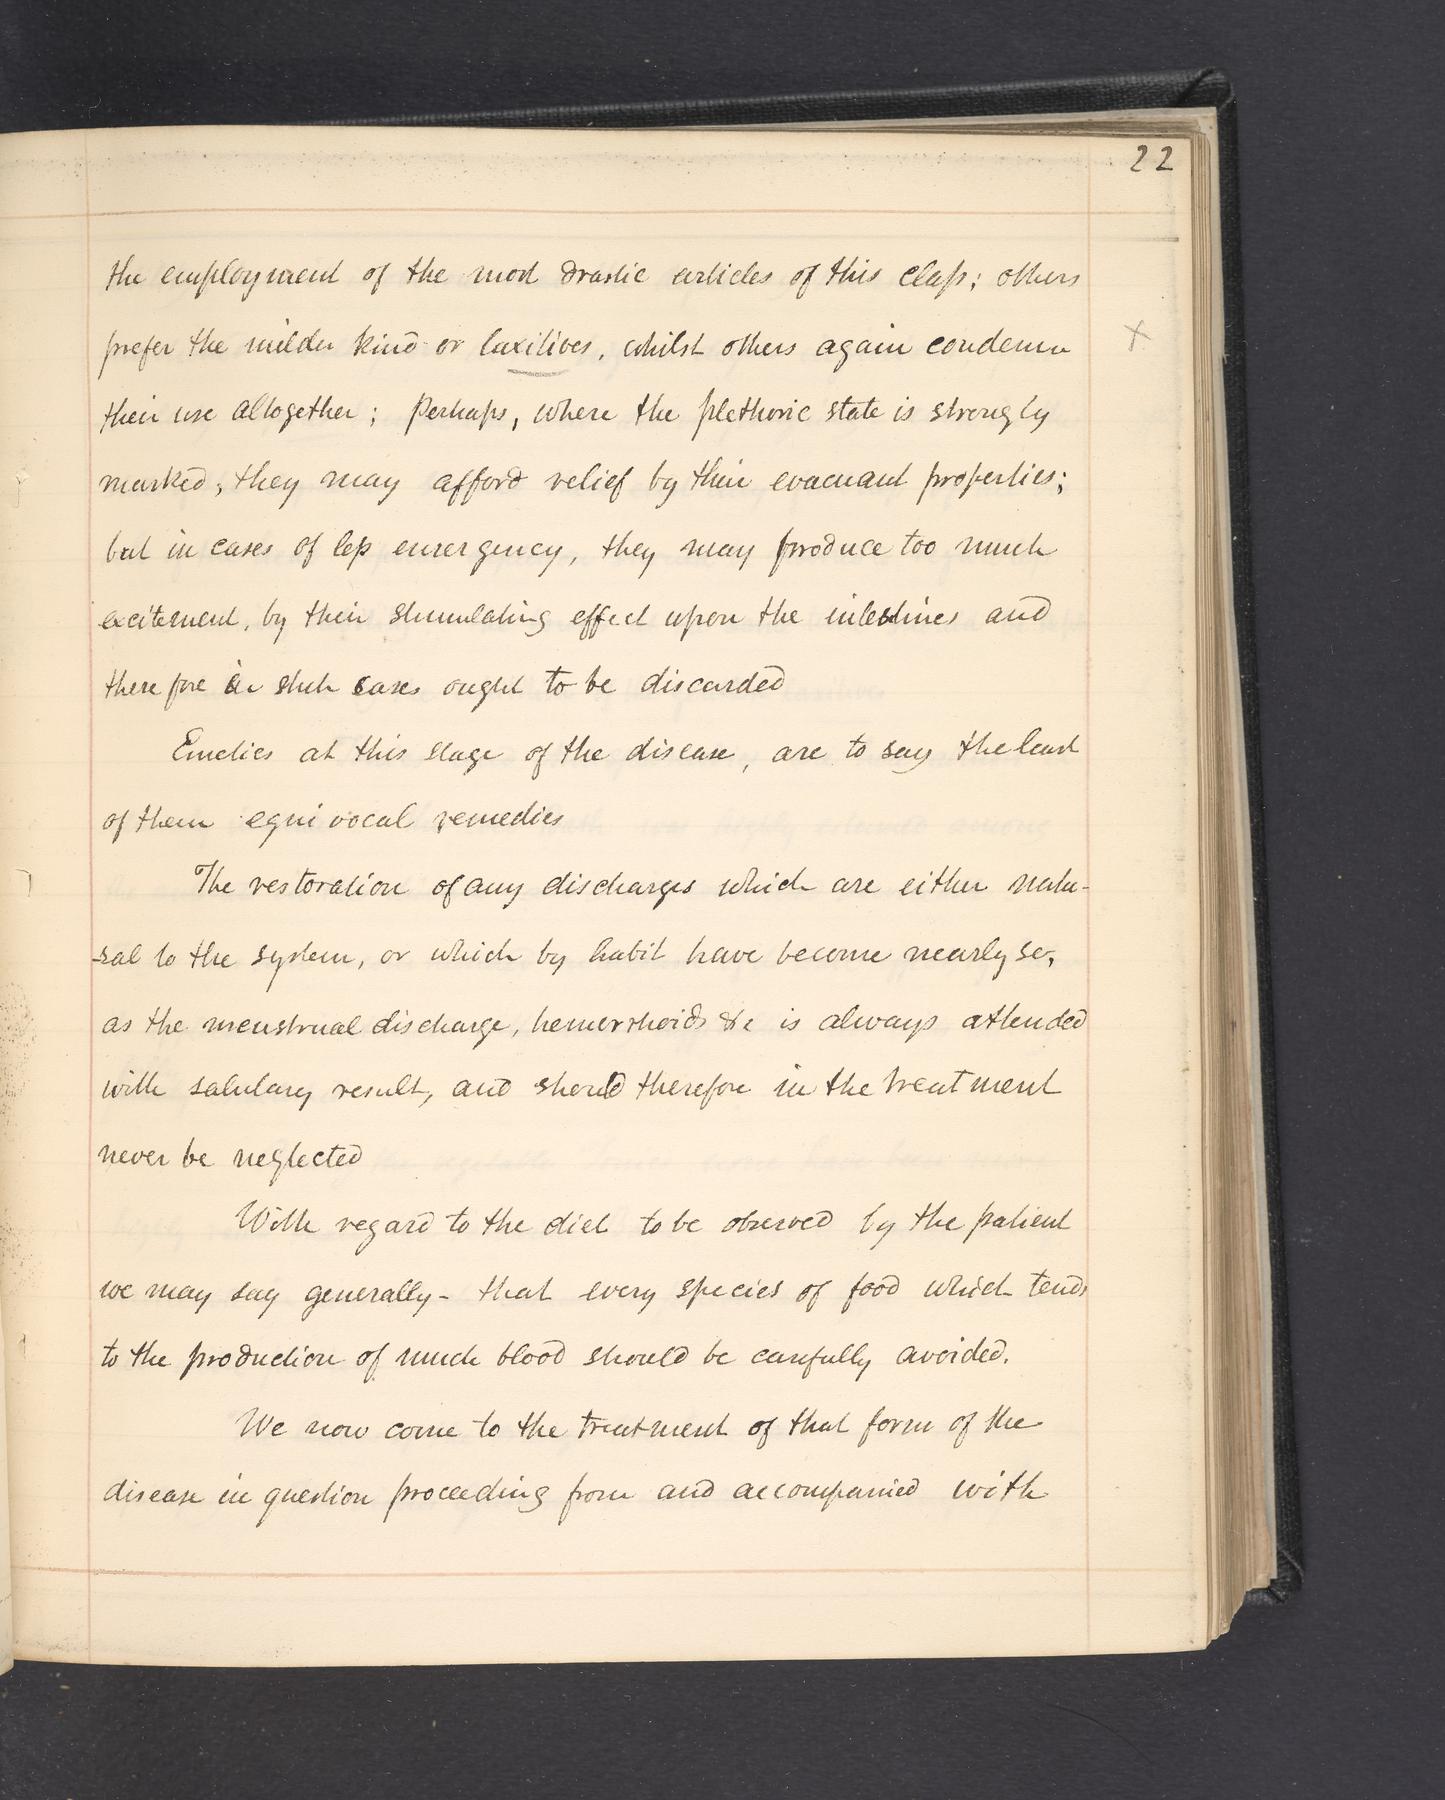 22
the employment of the most drastic articles of this class; others
prefer the milder kind or laxitives, whilst others again condemn
their use altogether; Perhaps, where the plethoric state is strongly
marked, they may afford relief by their evacuant properties;
but in cases of less emergency, they may produce too much
excitement, by their stimulating effect upon the intestines and
therefore in such cases ought to be discarded
Emetics at this stage of the disease, are to say the least
of them equivocal remedies
The restoration of any discharges which are either natu-
-ral to the system, or which by habit have become nearly so,
as the menstrual discharge, hemorrhoids &c is always attended
with salutary result, and should therefore in the treatment
never be neglected
With regard to the diet to be observed by the patient
we may say generally - that every species of food which tends
to the production of much blood should be carefully avoided.
We now come to the treatment of that form of the
disease in question proceeding from and accompanied with